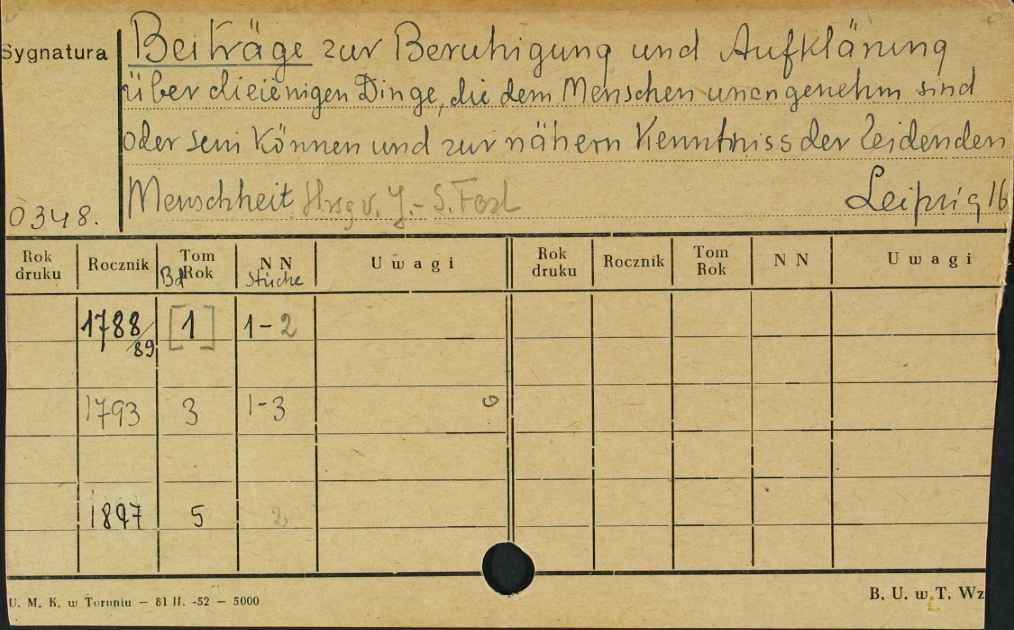 Sygnatura
Beiträge zur Beruhigung und Aufklärung
über diejenigen Dinge, die dem Menschen unangenehm sind
oder sein können und zur nähern Kenntniss der leidenden
Menschheit Hrsg v. J.-S. Fest Leipzig 16
0348.
Rok druku Rocznik Tom Rok N N Uwagi Rok druku Rocznik Tom Rok N N Uwagi
Bd Stücke
1788/89 [1] 1-2
1793 3 1-3
1897 5
U. M. K. w Toruniu — 81 II. -52 — 5000 B. U. w T. Wz